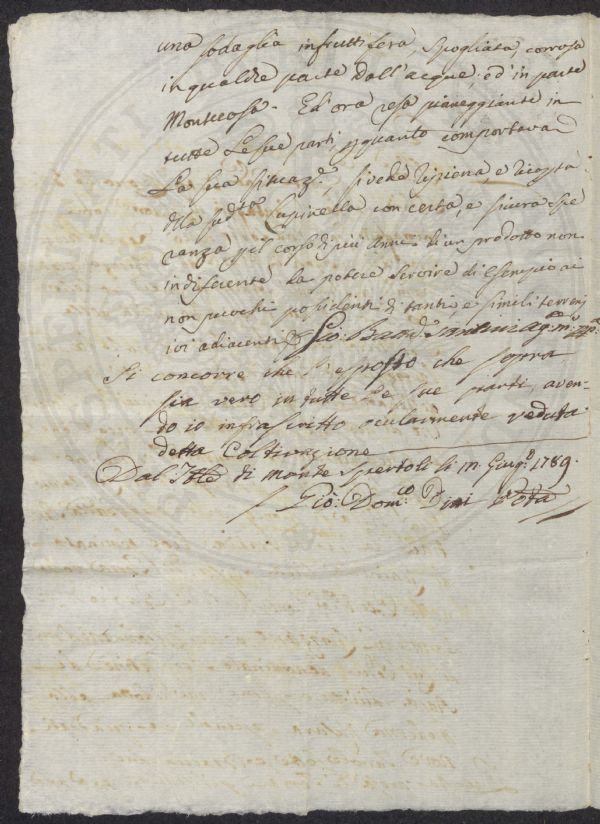 una sodaglia infruttifera, spogliata, corrosa
in qualche parte dall'acque, ed' in parte
Montuosa. Ed' ora resa pianeggiante in
tutte le sue parti, quanto comportava
La sua situaz.e, si vede ripiena, e
Lupinella con certa, e sicura spe
ranza nel corso di più Anni di un prodotto non
indiferente da potere servire di Esempio ai
non pochi possidenti di tanti, e simili terreni
ivi adiacenti Gio: Batt.
Si concorre che l'esposto che sopra
sia vero in tutte le sue parti, aven
do io infrascritto ocularmente veduta
detta Coltivazione
Dal di Monte Spertoli li 11. Giug.o 1789.
Gio: Dom.co Dini